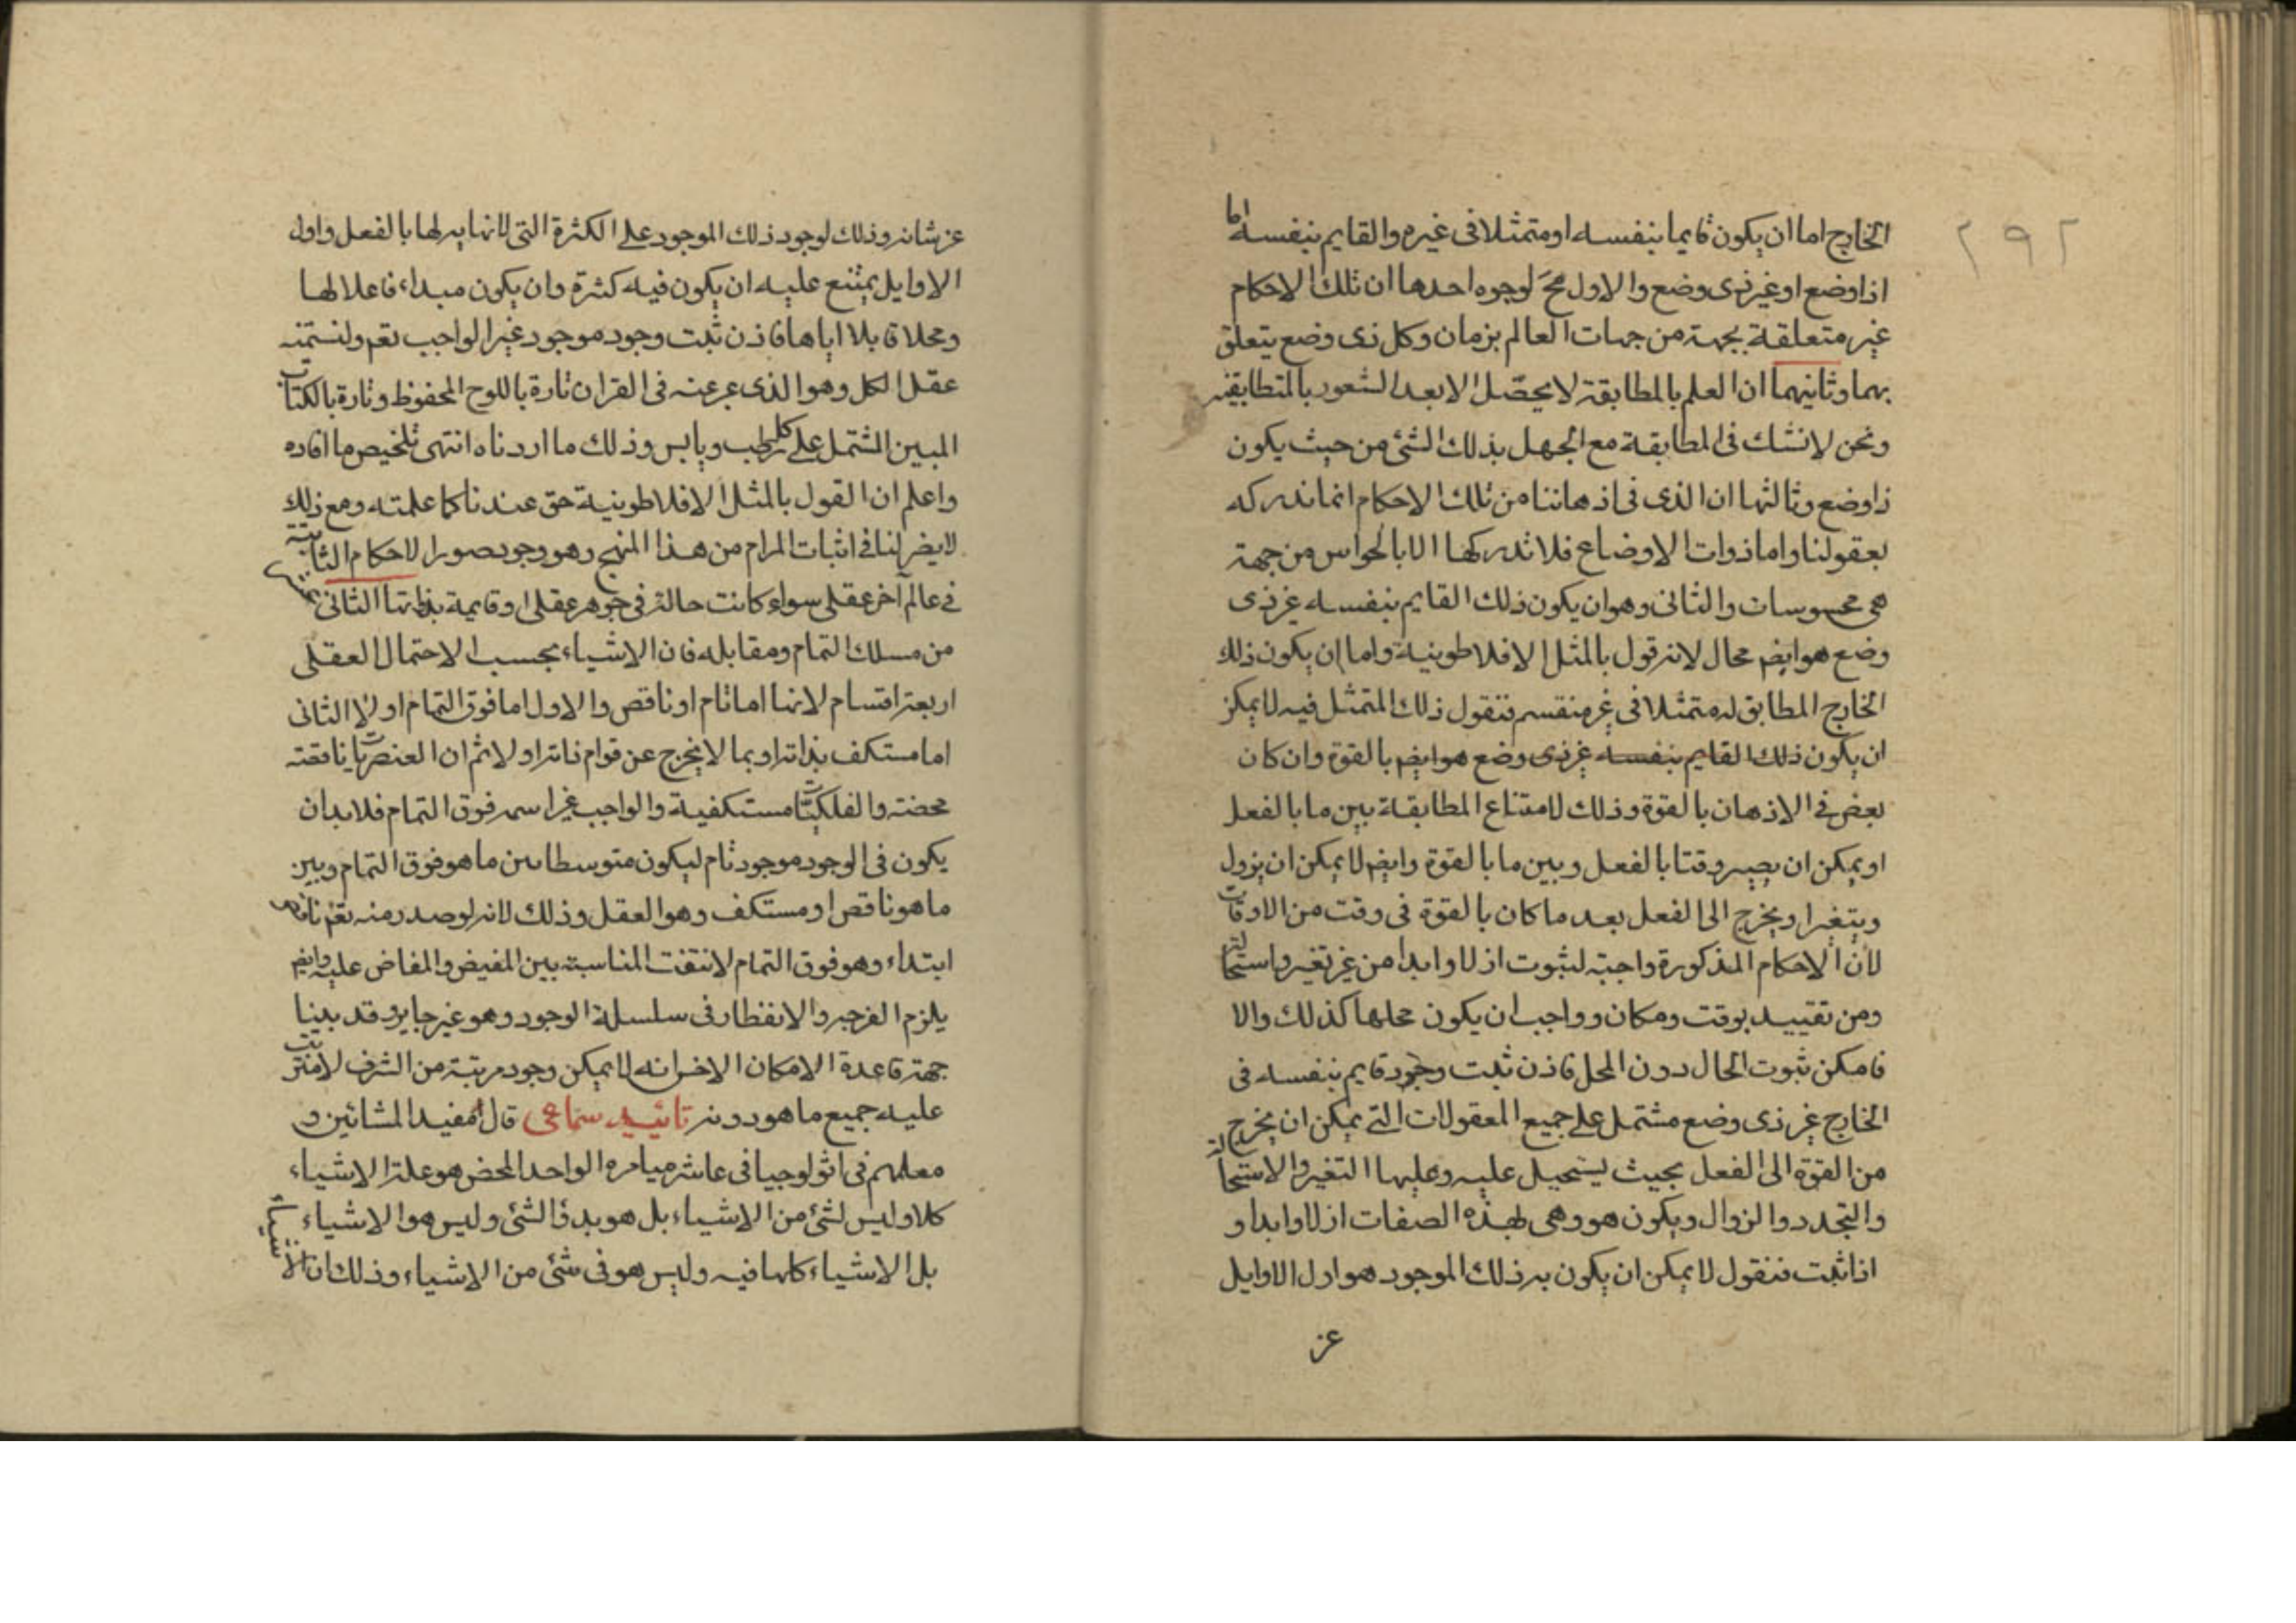 ٢٩٢
الخارج اما ان يكون قايما بنفسه او متمثلا في غيره والقايم بنفسه اما
اذا وضع او غير ذي وضع والاول مح لوجوه احدها ان تلك الاحكام
غير متعلقة بجهة من جهات العالم بزمان وكل ذي وضع يتعلق
بهما وثانيهما ان العلم بالمطابقة لا يحصّل الا بعد الشعور بالمتطابقين
ونحن لا نشك في المطابقة مع الجهل بذلك الشئ من حيث يكون
ذا وضع وثالثها ان الذي في اذهاننا من تلك الاحكام انما ندركه
بعقولنا واما ذوات الاوضاع فلا ندركها الا بالحواس من جهة
هي محسوسات والثاني وهو ان يكون ذلك القايم بنفسه غير ذي
وضع هو ايضم محال لانه قول بالمثل الافلاطونية واما ان يكون ذلك
الخارج المطابق له متمثلا في غير منقسم فنقول ذلك المتمثل فيه لا يمكن
ان يكون ذلك القايم بنفسه غير ذي وضع هو ايضم بالقوة وان كان
بعض في الاذهان بالقوة وذلك لامتناع المطابقة بين ما بالفعل
او يمكن ان يصير وقتا بالفعل وبين ما بالقوة وايضم لا يمكن ان يزول
ويتغير او يخرج الى الفعل بعد ما كان بالقوة في وقت من الاوقات
لان الاحكام المذكورة واجبة لثبوت ازلا وابدا من غير تغير واستحالة
ومن تقييد بوقت ومكان وواجب ان يكون محلها كذلك والا
فامكن ثبوت الحال دون المحل فاذن ثبت وجود قايم بنفسه في
الخارج غير ذي وضع مشتمل على جميع المعقولات التي يمكن ان يخرج
من القوة الى الفعل بحيث يستحيل عليه وعليها التغير والاستحالة
والتجدد والزوال ويكون هو وهي لهذه الصفات ازلا وابدا و
اذا ثبت فنقول لا يمكن ان يكون به ذلك الموجود هو اول الاوايل
عز
عز شانه وذلك لوجود ذلك الموجود على الكثرة التي لا نهاية لها بالفعل واول
الاوايل يمتنع عليه ان يكون فيه كثرة وان يكون مبداء فاعلا لها
ومحلا قابلا اياها فاذن ثبت وجود موجود غير الواجب تعم ولنسمه
عقل الكل وهو الذي عبر عنه في القران تارة باللوح المحفوظ وتارة بالكتاب
المبين المشتمل على كل رطب ويابس وذلك ما اردناه انتهى تلخيص ما افاده
واعلم ان القول بالمثل الافلاطونية حق عندنا كما علمته ومع ذلك
لا يضر لنا في اثبات المرام من هذا المنهج وهو وجود صور الاحكام الثابتة
في عالم آخر عقلي سواء كانت حالة في جوهر عقلي او قايمة بذاتها الثاني عشر
من مسلك التمام ومقابله فان الاشياء بحسب الاحتمال العقلي
اربعة اقسام لانها اما تام او ناقص والاول اما فوق التمام او لا الثاني
اما مستكف بذاته او بما لا يخرج عن قوام ذاته او لا ثم ان العنصريات ناقصة
محضة والفلكيات مستكفية والواجب عز اسمه فوق التمام فلا بد ان
يكون في الوجود موجود تام ليكون متوسطا بين ما هو فوق التمام وبين
ما هو ناقص او مستكف وهو العقل وذلك لانه لو صدر منه تعم ناقص
ابتداء وهو فوق التمام لانتفت المناسبة بين المفيض والمفاض عليه وايضم
يلزم الفرجه والانفطار في سلسلة الوجود وهو غير جايز وقد بينا
جهة قاعدة الامكان الاخس انه لا يمكن وجود مرتبة من الشرف لا مترتب
عليه جميع ما هو دونه تائييد سماعى قال مفيد المشائين و
معلمهم في اثولوجيا في عاشر ميامره الواحد المحض هو علة الاشياء
كلا وليس لشئ من الاشياء بل هو بدؤ الشئ وليس هو الاشياء
بل الاشياء كلها فيه وليس هو في شئ من الاشياء وذلك ان الاشياء